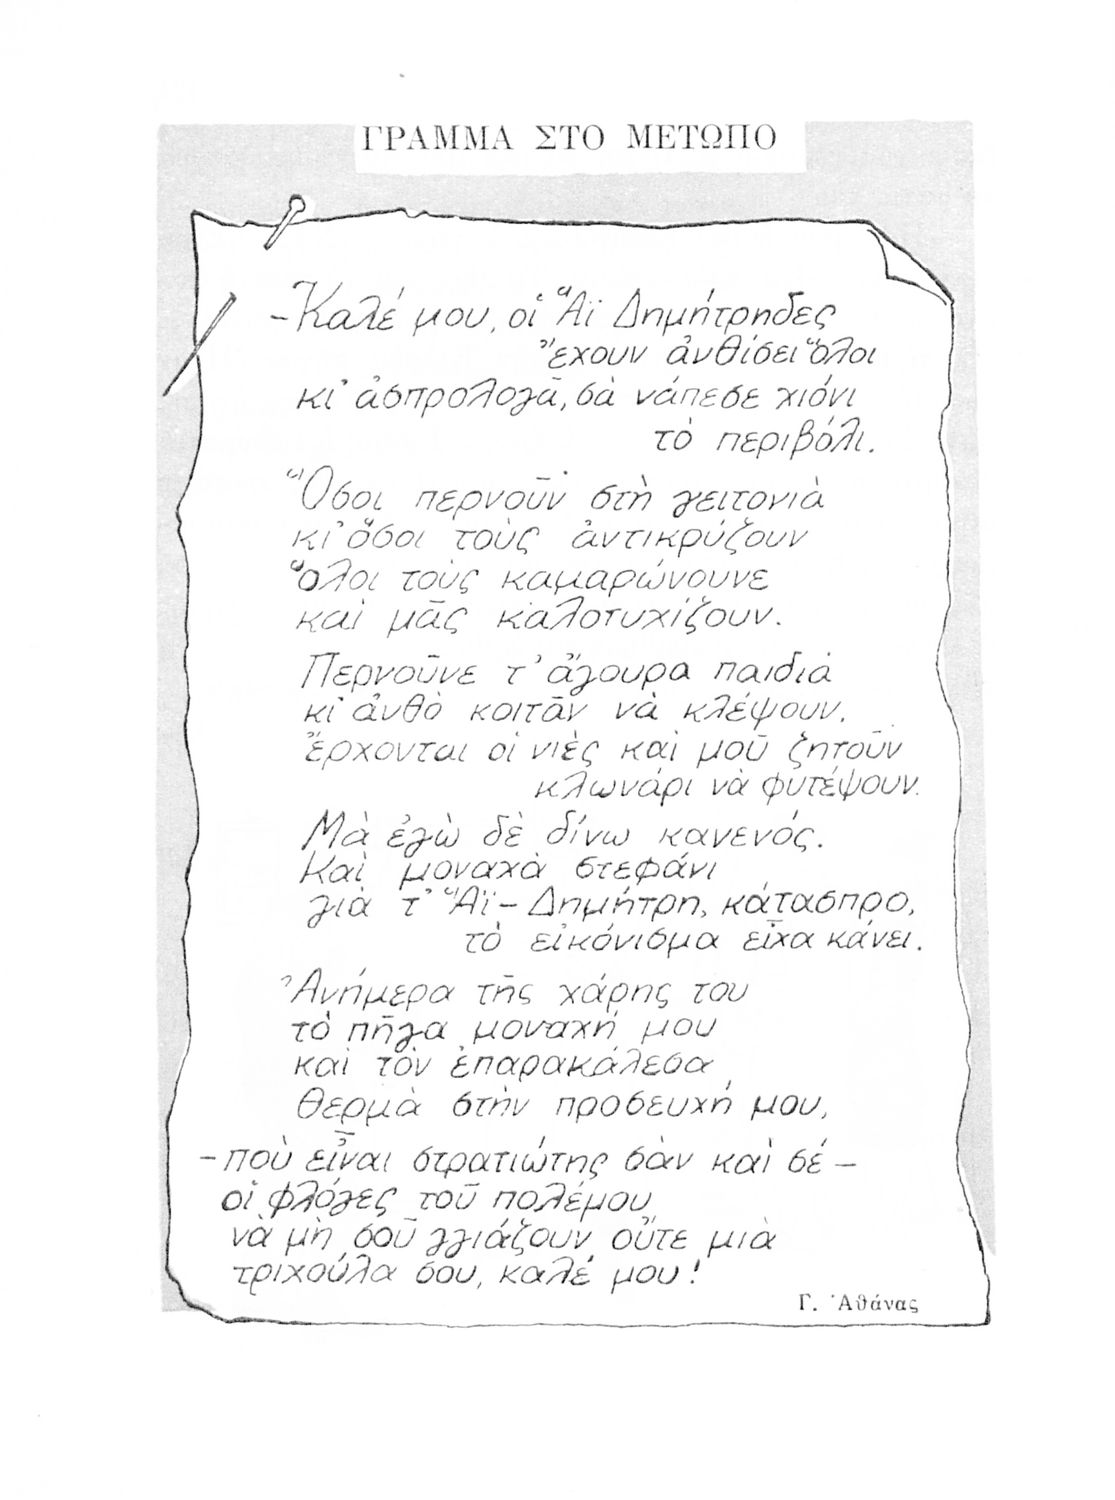 ΓΡΑΜΜΑ ΣΤΟ ΜΕΤΩΠΟ
-Καλέ μου, οἱ Ἅϊ Δημήτρηδες
ἔχουν ἀνθίσει ὅλοι
κι᾿ ἀσπρολογᾶ, σὰ νάπεσε χιόνι
τὸ περιβόλι.
Ὅσοι περνοῦν στὴ γειτονιὰ
κι᾿ ὅσοι τοὺς ἀντικρύζουν
ὅλοι τοὺς καμαρώνουνε
καὶ μᾶς καλοτυχίζουν.
Περνοῦνε τ᾿ ἄγουρα παιδιὰ
κι᾿ ἀνθὸ κοιτᾶν νὰ κλέψουν.
Ἔρχονται οἱ νιὲς καὶ μοῦ ζητοῦν
κλωνάρι νὰ φυτέψουν.
Μὰ ἐγὼ δὲ δίνω κανενός.
Καὶ μοναχὰ στεφάνι
γιὰ τ᾿ Ἅϊ-Δημήτρη, κάτασπρο,
τὸ εἰκόνισμα εἶχα κάνει.
Ἀνήμερα τῆς χάρης του
τὸ πῆγα μοναχή μου
καὶ τὸν ἐπαρακάλεσα
θερμὰ στὴν προσευχή μου,
-ποὺ εἶναι στρατιώτης σὰν καὶ σέ-
οἱ φλόγες τοῦ πολέμου
νὰ μὴ σοῦ γγιάζουν οὔτε μιὰ
τριχούλα σου, καλέ μου!
Γ. Ἀθάνας